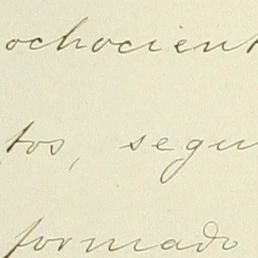 ochocient
tos, segu
formado